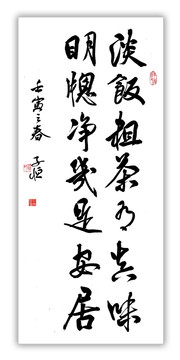 淡飯粗茶有真味
明牕净幾是安居
壬寅之春 子恒